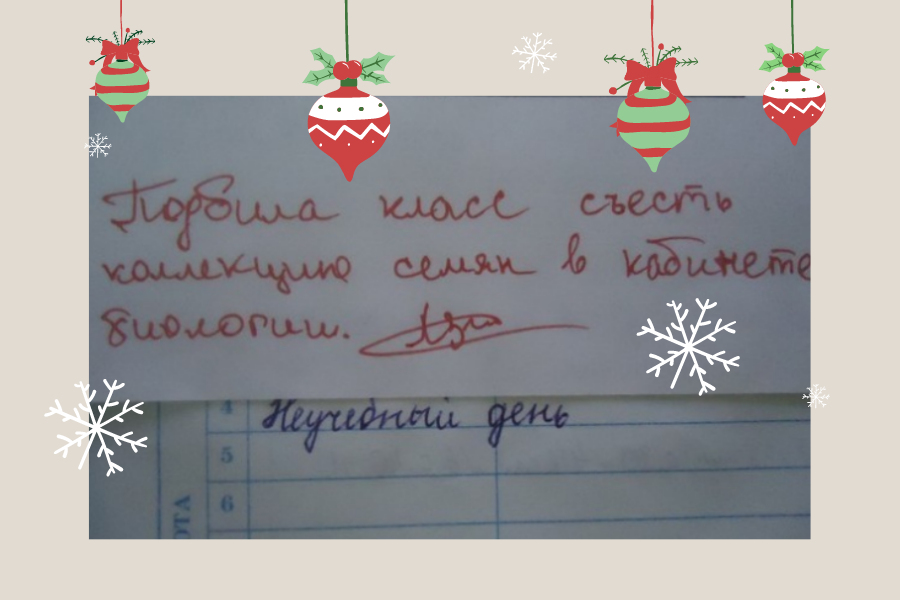 Подбила класс съесть
коллекцию семян в кабинете
биологии.
4 Неучебный день
5
6
ОТА